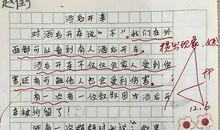 赵佳
酒后开车
对酒后开车说“不”我们在外
面都可以看到有人酒后开车。
酒后不仅仅会家人受到伤
害还有可能他人也会受到伤害。
有一次有一位叔叔因为酒后开
车被拘留了！
提出观象，好
12.6